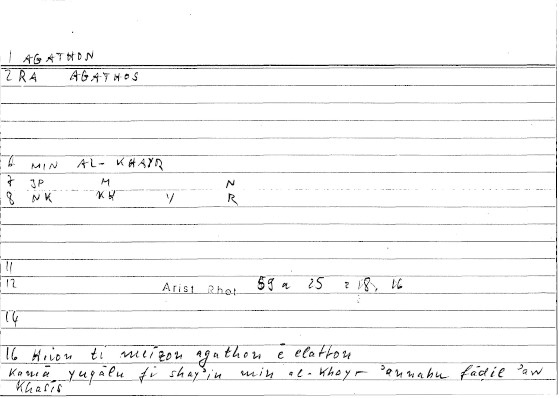 1 AGATHON
2 RA AGATHOS
6 MIN AL-KHAYR
7 JP M N
8 NK KH Y R
11
12 Arist Rhet 59 a 25 = 18, 16
14
16 Hoion ti meizon agathon ē elatton
Kamā yuqālu fi shayʾin min al-khayr ʾannahu fāḍil ʾaw
Khasīs